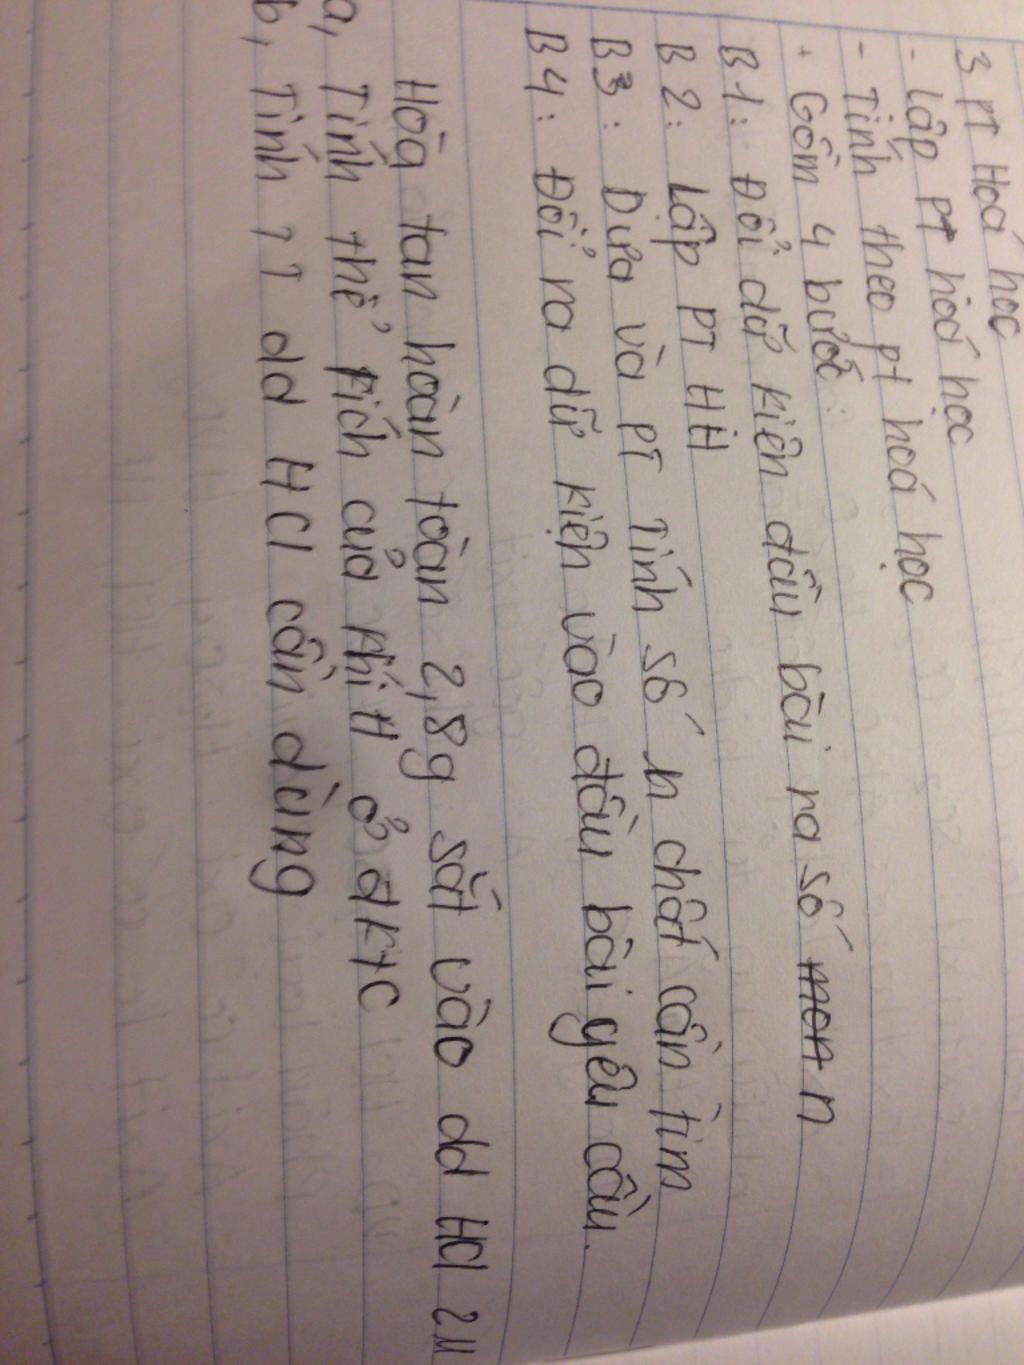 3 PT Hoá học
- Lập PT hoá học
- Tính theo pt hoá học
+ Gồm 4 bước:
B1: Đổi dữ kiện đầu bài ra số n
B2: Lập PT HH
B3: Dựa và PT Tính số n chất cần tìm
B4: Đổi ra dữ kiện vào đầu bài yêu cầu.
Hòa tan hoàn toàn 2,8g sắt vào dd HCl 2M
a, Tính thể tích của khí H ở đktc
b, Tính dd HCl cần dùng